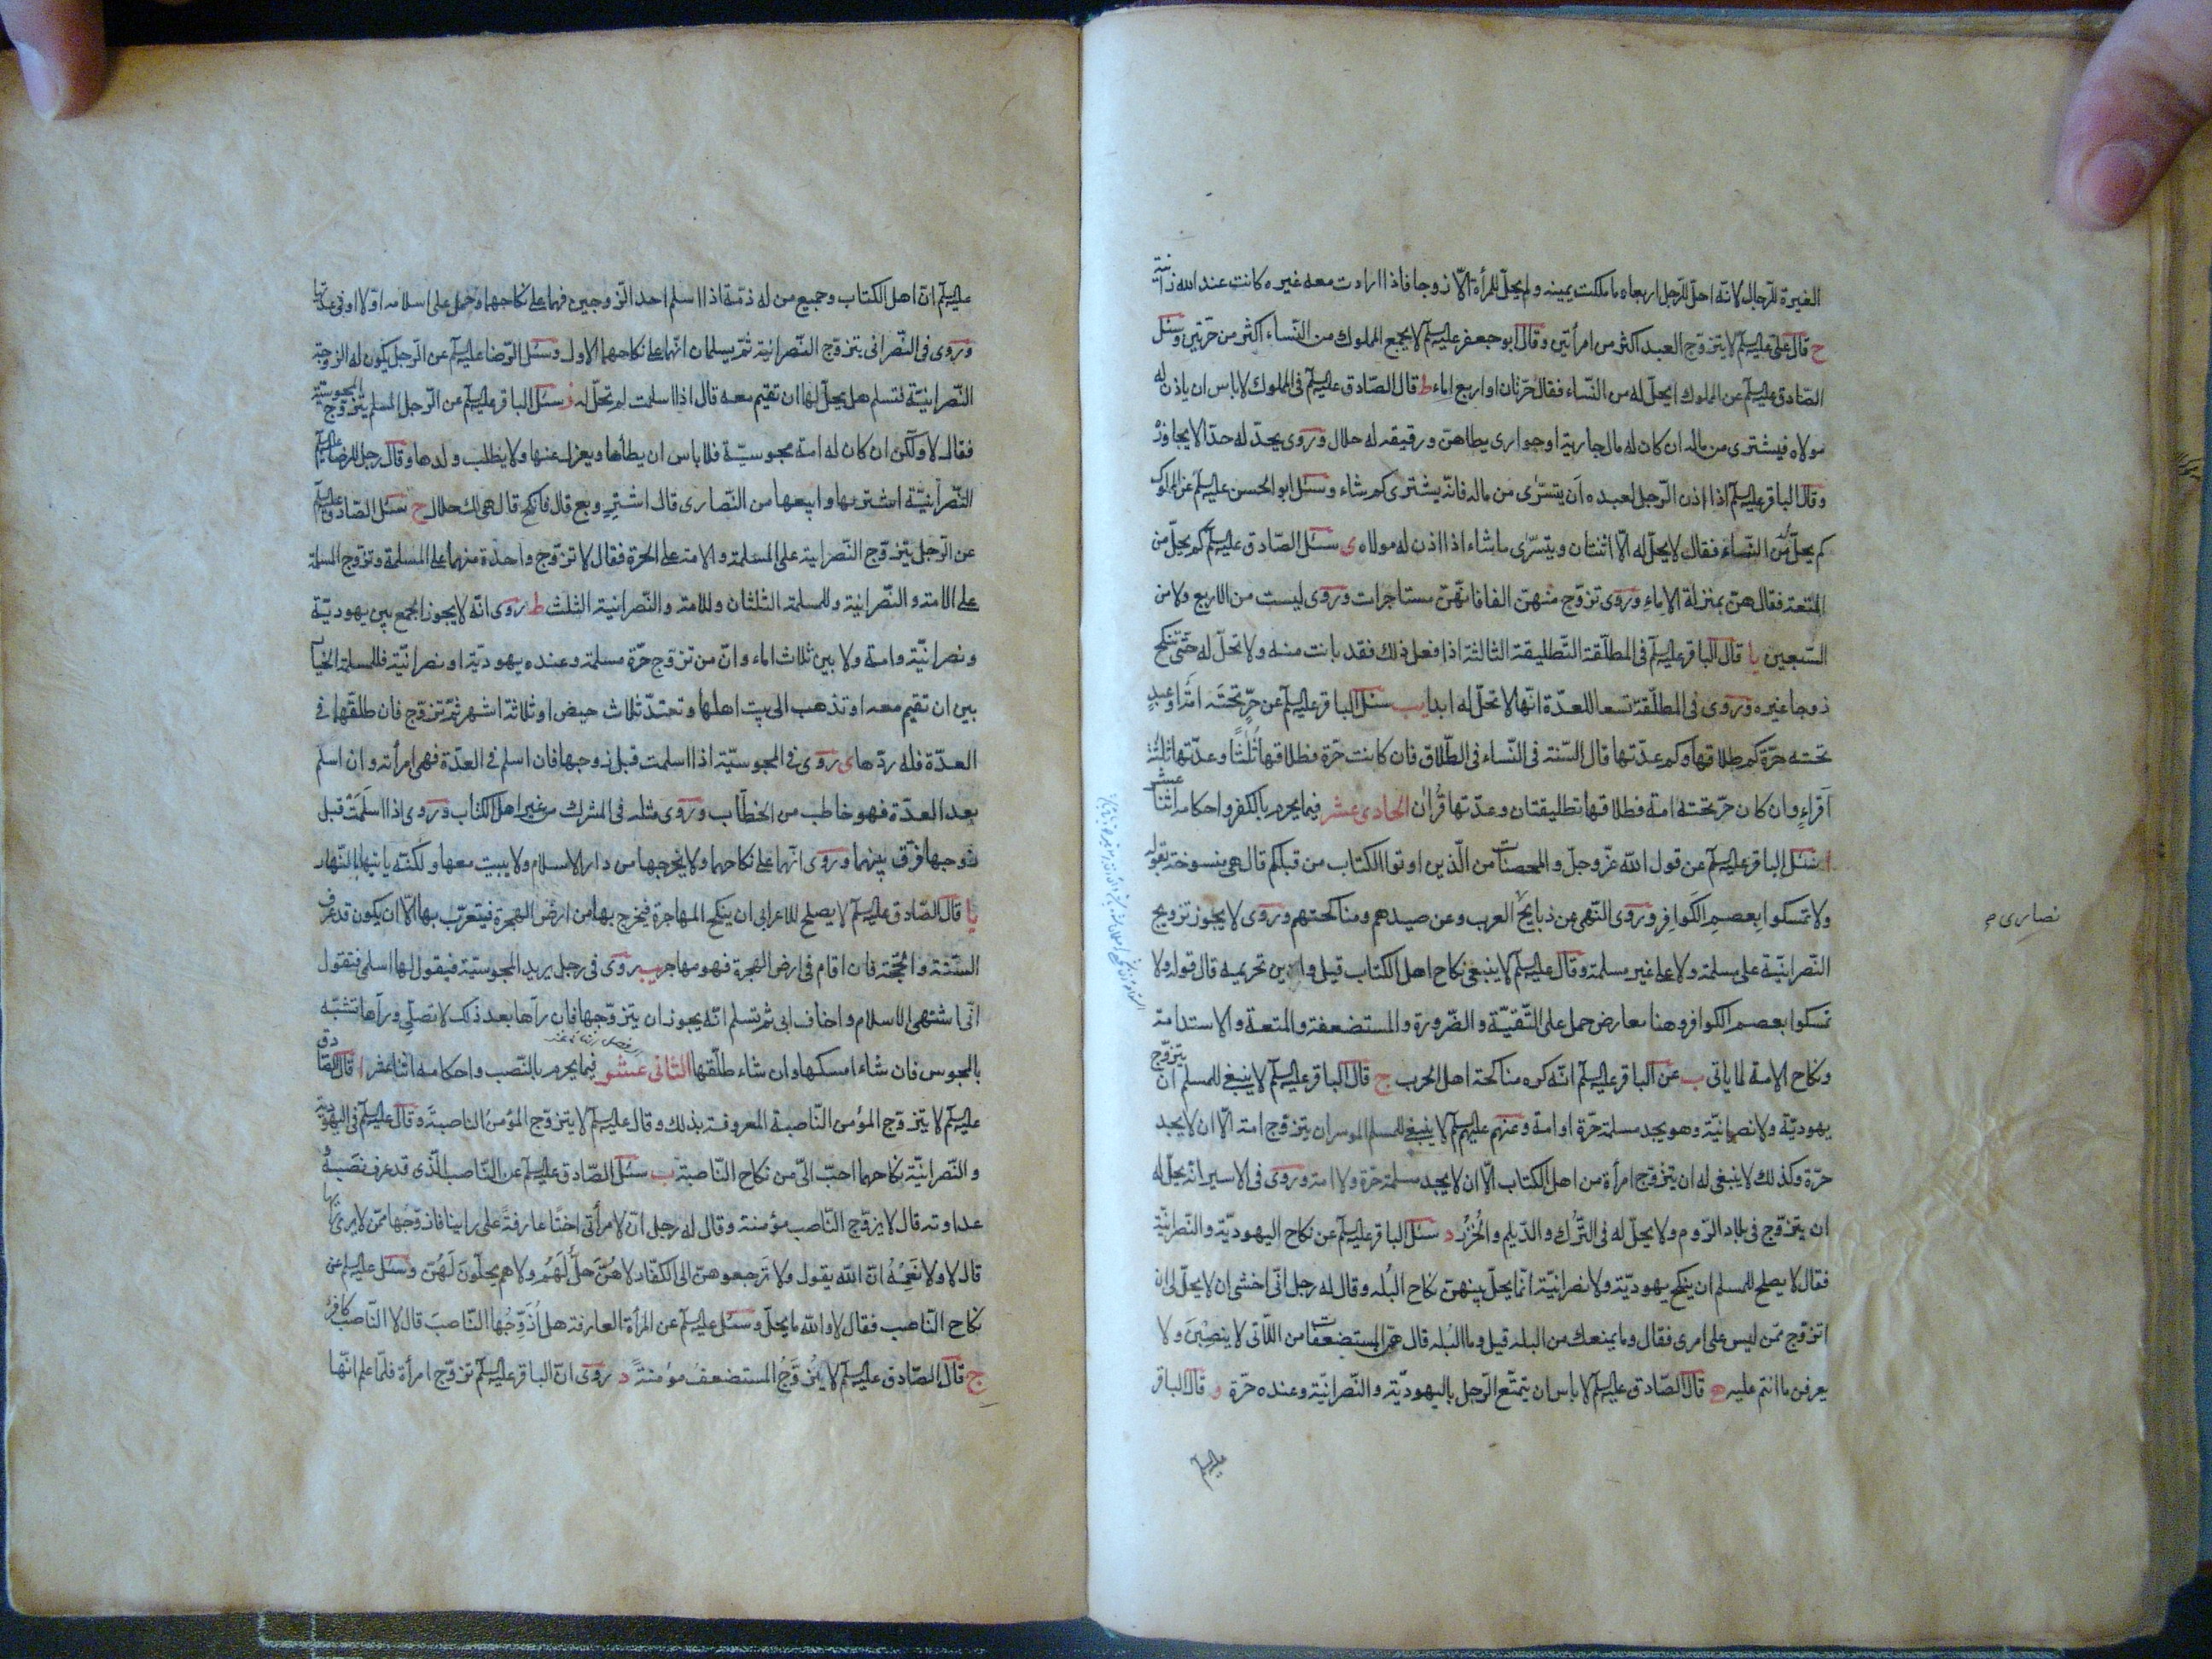 الغيرة للرجال لانه احل للرجل اربعا وما ملكت يمينه ولم يحل للمرأة الا زوجا فاذا ارادت معه غيره كانت عند الله زانية
ح قال علي عليه السلم لا يتزوج العبد اكثر من امرأتين وقال ابو جعفر عليه السلم لا يجمع المملوك من النساء اكثر من حرتين وسئل
الصادق عليه السلم عن المملوك ايحل له من النساء فقال حرتان او اربع اماء ط قال الصادق عليه السلم في المملوك لا باس ان ياذن له
مولاه فيشتري من ماله ان كان له مال جارية او جواري يطاهن ورقيقه له حلال وروى يحد له حدا لا يجاوز
وقال الباقر عليه السلم اذا اذن الرجل لعبده ان يتسرى من ماله فانه يشتري كم شاء وسئل ابو الحسن عليه السلم عن المملوك
كم يحل له من النساء فقال لا يحل له الا اثنتان ويتسرى ما شاء اذا اذن له مولاه ى سئل الصادق عليه السلم كم يحل من
المتعة فقال هن بمنزلة الاماء وروى تزوج منهن الفا فانهن مستاجرات وروى ليست من الاربع ولا من
السبعين يا قال الباقر عليه السلم في المطلقة التطليقة الثالثة اذا فعل ذلك فقد بانت منه ولا تحل له حتى تنكح
زوجا غيره وروى في المطلقة تسعا للعدة انها لا تحل له ابدا يب سئل الباقر عليه السلم عن حر تحته امة او عبد
تحته حرة كم طلاقها وكم عدتها قال السنة في النساء في الطلاق فان كانت حرة فطلاقها ثلثا وعدتها ثلثة
اقراء وان كان حر تحته امة فطلاقها تطليقتان وعدتها قرآن الحادى عشر فيما يحرم بالكفر واحكامه اثنا عشر
ا سئل الباقر عليه السلم عن قول الله عز وجل والمحصنات من الذين اوتوا الكتاب من قبلكم قال هي منسوخة بقوله
ولا تمسكوا بعصم الكوافر وروى النهى عن ذبايح العرب وعن صيدهم ومناكحتهم وروى لا يجوز تزويج
نصارى م
النصرانية على مسلمة ولا على غير مسلمة وقال عليه السلم لا ينبغي نكاح اهل الكتاب قيل واين تحريمه قال قوله ولا
تمسكوا بعصم الكوافر وهنا معارض حمل على التقية والضرورة والمستضعفة والمتعة والاستدامة
ونكاح الامة لما ياتى ب عن الباقر عليه السلم انه كره مناكحة اهل الحرب ج قال الباقر عليه السلم لا ينبغي للمسلم ان يتزوج
يهودية ولا نصرانية وهو يجد مسلمة حرة او امة وعنهم عليهم السلم لا ينبغي للمسلم الموسر ان يتزوج امة الا ان لا يجد
حرة وكذلك لا ينبغي له ان يتزوج امرأة من اهل الكتاب الا ان لا يجد مسلمة حرة ولا امة وروى في الاسير انه يحل له
ان يتزوج في بلاد الروم ولا يحل له في الترك والديلم والخزر د سئل الباقر عليه السلم عن نكاح اليهودية والنصرانية
فقال لا يصلح للمسلم ان ينكح يهودية ولا نصرانية انما يحل منهن نكاح البله وقال له رجل انى اخشى ان لا يحل لى ان
اتزوج ممن ليس على امرى فقال وما يمنعك من البله قيل وما البله قال هن المستضعفات من اللاتى لا ينصبن ولا
يعرفن ما انتم عليه ه قال الصادق عليه السلم لا باس ان يتمتع الرجل باليهودية والنصرانية وعنده حرة و قال الباقر
عليه السلم
عليه السلم ان اهل الكتاب وجميع من له ذمة اذا اسلم احد الزوجين فهما على نكاحهما وحمل على اسلامه اولا او في عدتها
وروى في النصرانى يتزوج النصرانية ثم يسلمان انهما على نكاحهما الاول وسئل الرضا عليه السلم عن الرجل يكون له الزوجة
النصرانية فتسلم هل يحل لها ان تقيم معه قال اذا اسلمت لم تحل له ز سئل الباقر عليه السلم عن الرجل المسلم يتزوج المجوسية
فقال لا ولكن ان كان له امة مجوسية فلا باس ان يطأها ويعزل عنها ولا يطلب ولدها وقال رجل للرضا عليه السلم
النصرانية اشتريها وابيعها من النصارى قال اشتر وبع قال فانكح قال هي لك حلال ح سئل الصادق عليه السلم
عن الرجل يتزوج النصرانية على المسلمة والامة على الحرة فقال لا تزوج واحدة منهما على المسلمة وتزوج المسلمة
على الامة والنصرانية وللمسلمة الثلثان وللامة والنصرانية الثلث ط روى انه لا يجوز الجمع بين يهودية
ونصرانية وامة ولا بين ثلاث اماء وان من تزوج حرة مسلمة وعنده يهودية او نصرانية فللمسلمة الخيار
بين ان تقيم معه او تذهب الى بيت اهلها وتعتد ثلاث حيض او ثلاثة اشهر ثم تزوج فان طلقها في
العدة فله ردها ى روى في المجوسية اذا اسلمت قبل زوجها فان اسلم في العدة فهي امرأته وان اسلم
بعد العدة فهو خاطب من الخطاب وروى مثله في المشرك من غير اهل الكتاب وروى اذا اسلمت قبل
زوجها فرق بينهما وروى انهما على نكاحهما ولا يخرجها من دار الاسلام ولا يبيت معها ولكنه ياتيها بالنهار
يا قال الصادق عليه السلم لا يصلح للاعرابى ان ينكح المهاجرة فيخرج بها من ارض الهجرة فيتعرب بها الا ان يكون قد عرف
السنة والحجة فان اقام في ارض الهجرة فهو مهاجر يب روى في رجل يريد المجوسية فيقول لها اسلمى فتقول
انى اشتهى الاسلام واخاف ابى ثم تسلم انه يجوز ان يتزوجها فان رآها بعد ذلك لا تصلى ورآها تشبه
بالمجوس فان شاء امسكها وان شاء طلقها الثانى عشر فيما يحرم بالنصب واحكامه اثنا عشر ا قال الصادق
عليه السلم لا يتزوج المؤمن الناصبة المعروفة بذلك وقال عليه السلم لا يتزوج المؤمن الناصبة وقال عليه السلم في اليهودية
والنصرانية نكاحهما احب الى من نكاح الناصبة ب سئل الصادق عليه السلم عن الناصب الذى قد عرف نصبه
عداوته قال لا يزوج الناصب مؤمنة وقال له رجل ان لامرأتى اختا عارفة على راينا فازوجها ممن لا يرى رايها
قال لا ولا نعمة ان الله يقول ولا ترجعوهن الى الكفار لا هن حل لهم ولا هم يحلون لهن وسئل عليه السلم عن
نكاح الناصب فقال لا والله ما يحل وسئل عليه السلم عن المرأة العارفة هل ازوجها الناصب قال لا الناصب كافر
ج قال الصادق عليه السلم لا يتزوج المستضعف مؤمنة د روى ان الباقر عليه السلم تزوج امرأة فلما علم انها